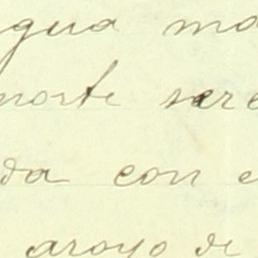 gua ma
norte sere
da con e
arroyo de